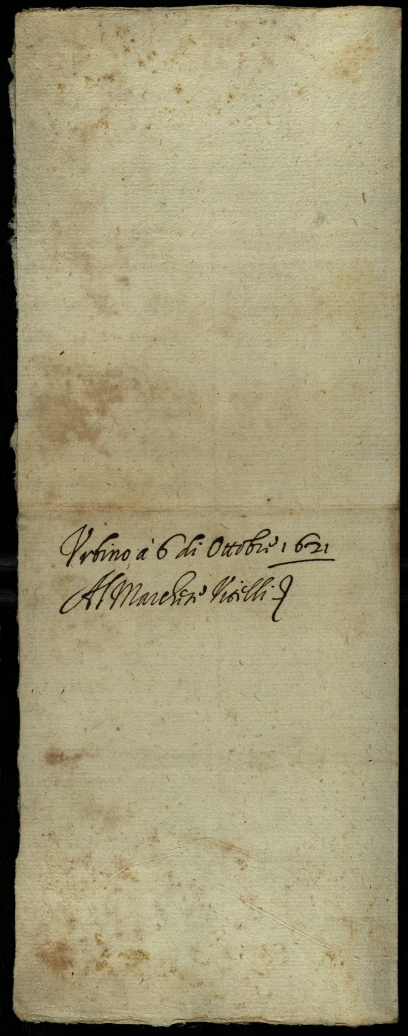 Vrbino, à 6 di Ottobre 1621
Al Marchese Vitelli